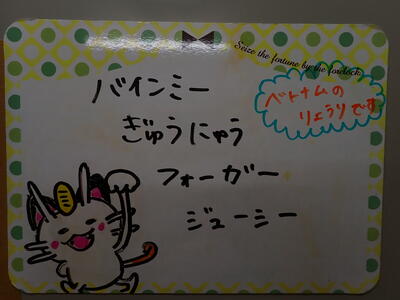 Seize the fortune by the forelock.
バインミー
ぎゅうにゅう
フォーガー
ジューシー
ベトナムの
りょうりです